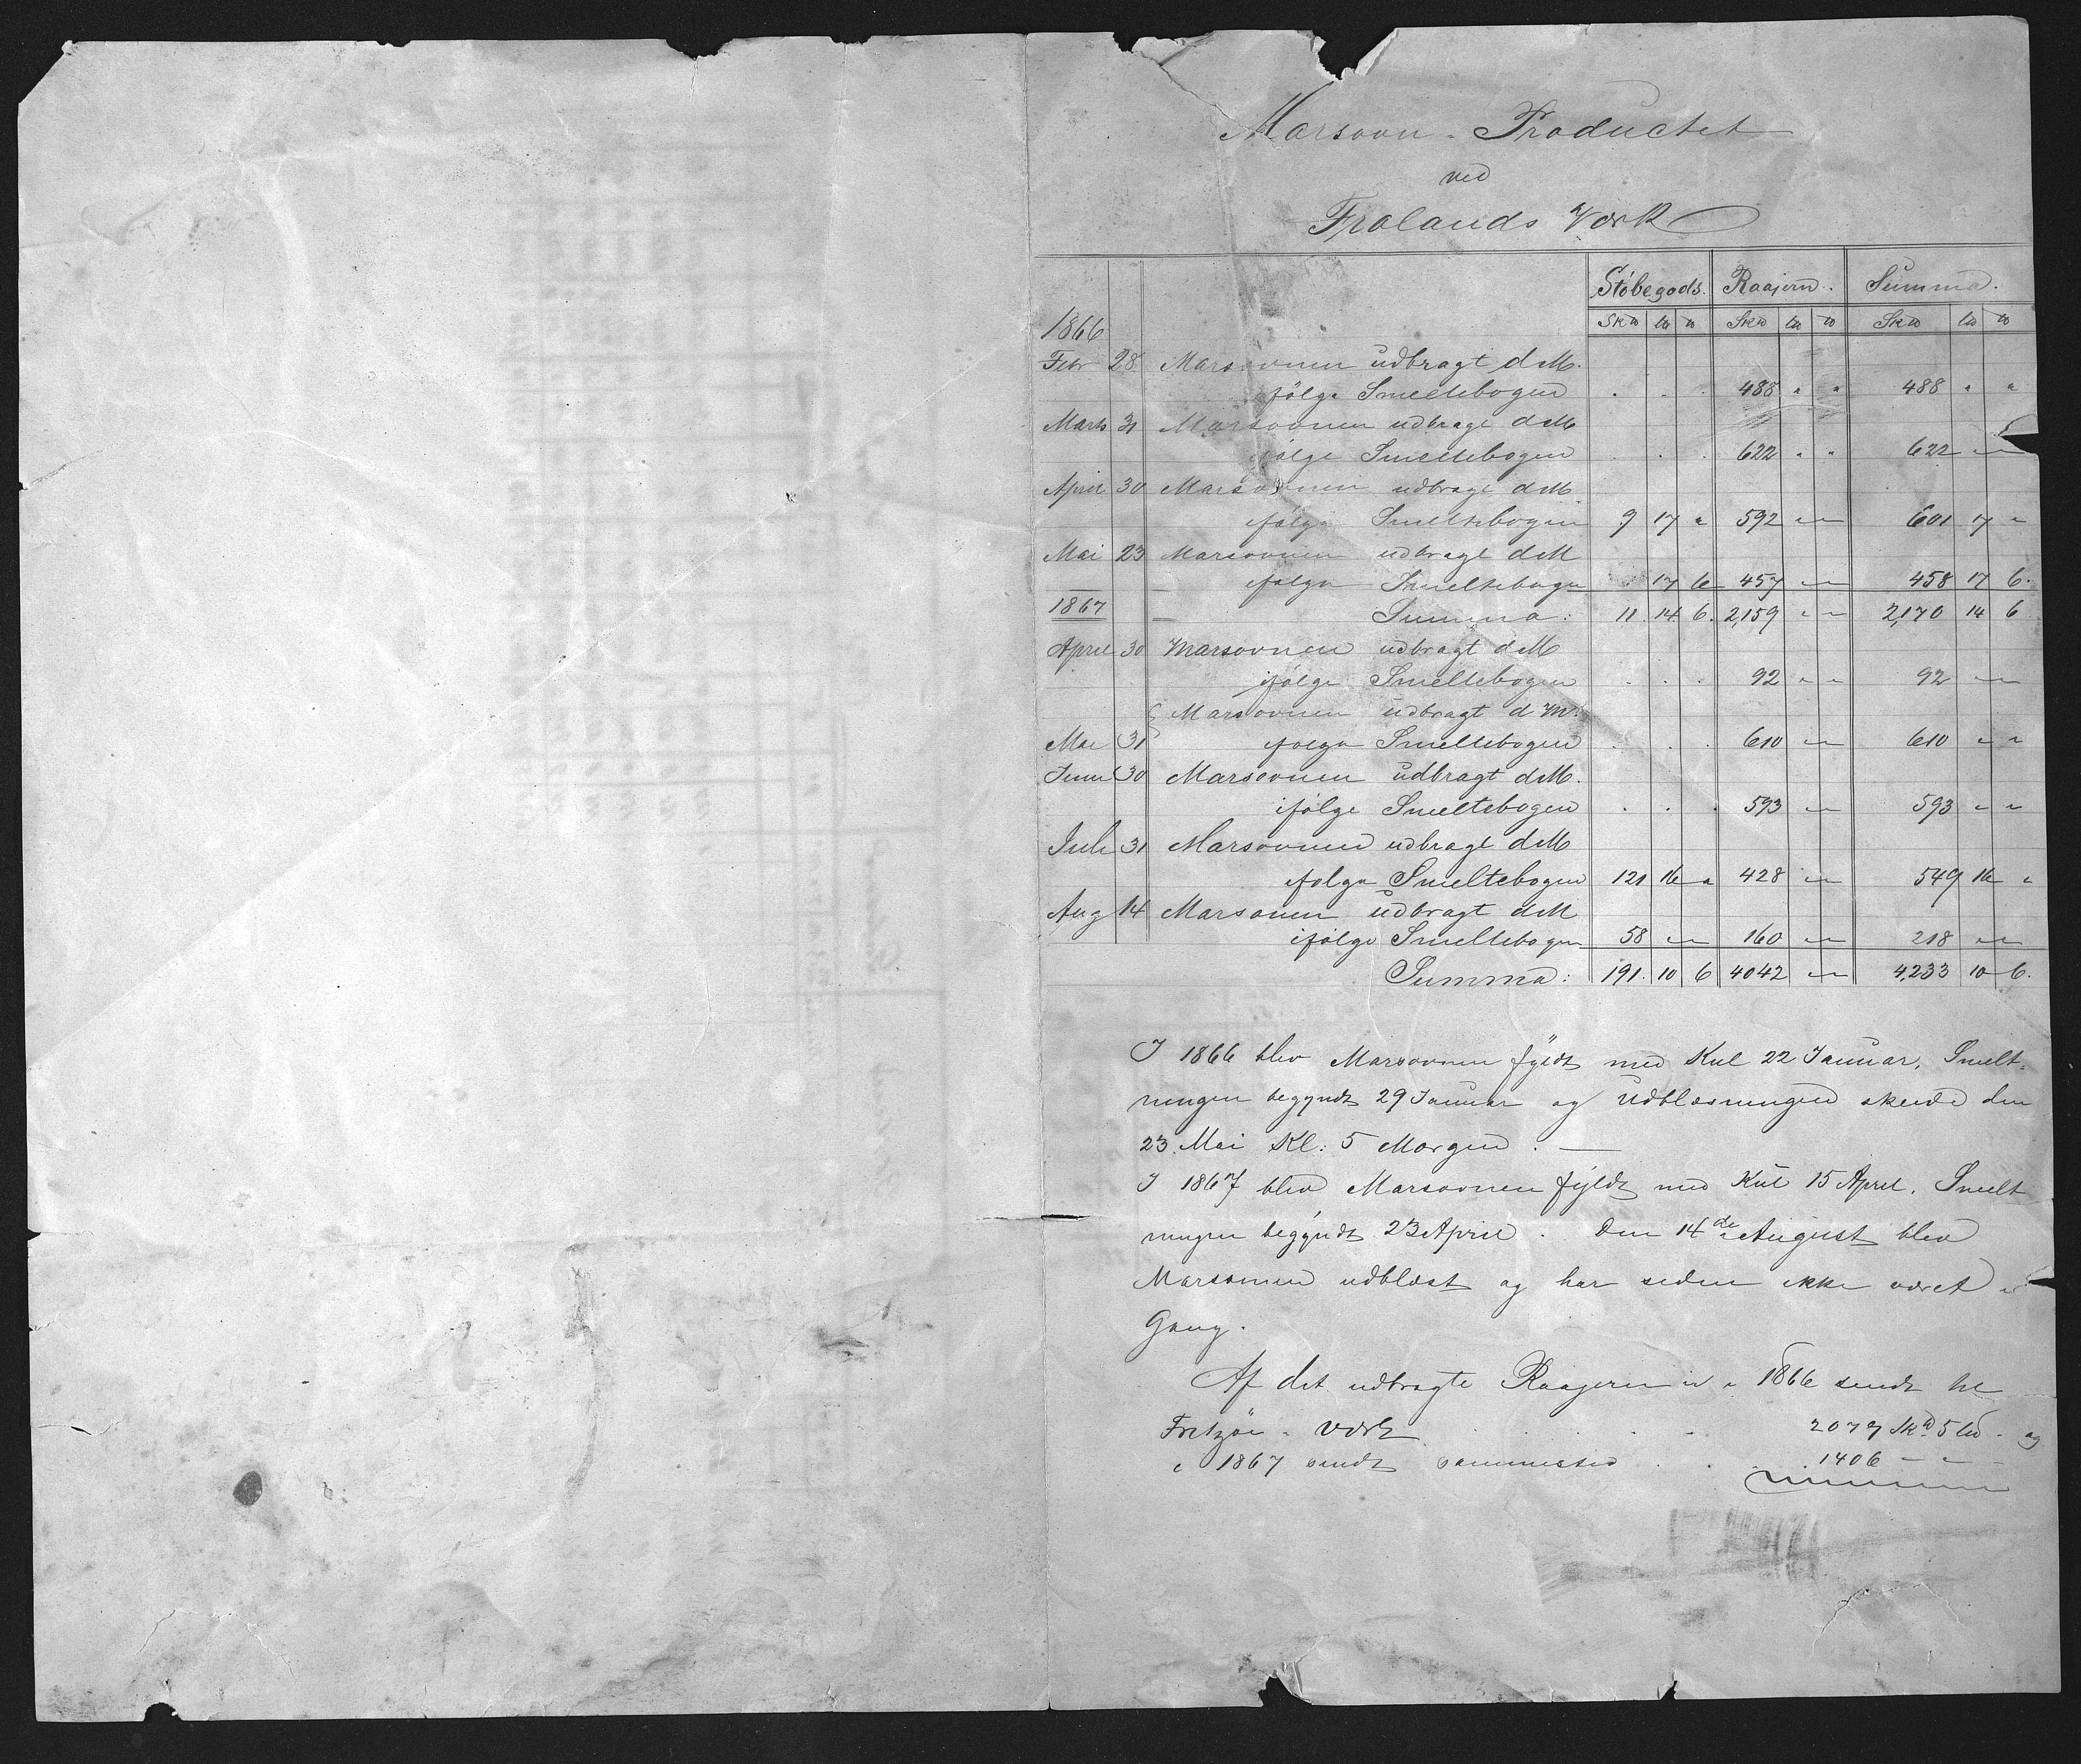 Marsovn-Productet
ved
Frolands Værk
Støbegods. Raajern. Summa.
1866 Sk℔ L℔ ℔ Sk℔ L℔ ℔ Sk℔ L℔ ℔
Febr 28 Marsovnen udbragt d M.
ifölge Smeltebogen . . . 488 " " 488 " "
Marts 31 Marsovnen udbragt d M
ifölge Smeltebogen . . . 622 " " 622 " "
April 30 Marsovnen udbragt d M.
ifölge Smeltebogen 9 17 " 592 " " 601 17 "
Mai 23 Marsovnen udbragt d M
ifölge Smeltebogen 17 6 457 " " 458 17 6.
1867 Summa: 11. 14 6. 2,159 " " 2,170 14 6
April 30 Marsovnen udbragt d M
ifölge Smeltebogen . . . 92 " " 92 " "
Marsovnen udbragt d M.
Mai 31 ifölge Smeltebogen . . . 610 " " 610 " "
Juni 30 Marsovnen udbragt d M.
ifölge Smeltebogen . . . 593 " " 593 " "
Juli 31 Marsovnen udbragt d M
ifölge Smeltebogen 121 16 " 428 " " 549 16 "
Aug 14 Marsovnen udbragt d M
ifölge Smeltebogen 58 " " 160 " " 218 " "
Summa: 191. 10 6 4042 " " 4,233 10 6.
I 1866 blev Marsovnen fyldt med Kul 22 Januar, Smelt-
ningen begyndt 29 Januar og Udblæsningen skeede den
23 Mai Kl: 5 Morgen. —
I 1867 blev Marsovnen fyldt med Kul 15 April, Smelt
ningen begyndt 23 April. Den 14de August blev
Marsovnen udblæst og har siden ikke været i
Gang.
Af det udbragte Raajern er i 1866 sendt til
Fritzöe-Værk . . . . . 2079 Sk℔ 5 L℔. og
i 1867 sendt sammested . . . 1406 " "